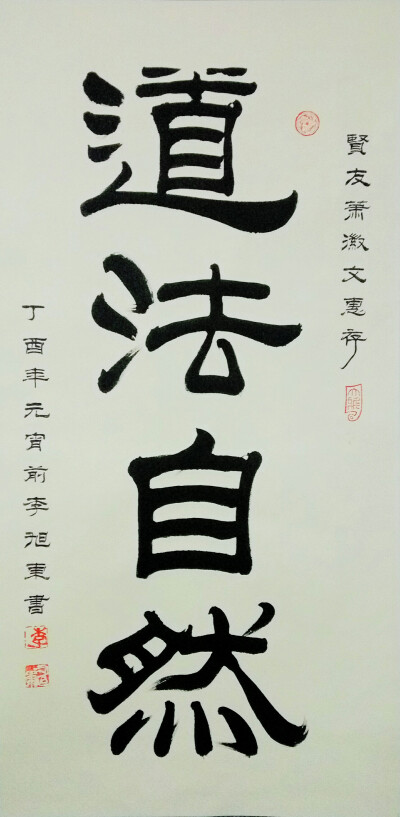 賢友蕭瀓文惠存
道法自然
丁酉年元宵前李旭東書